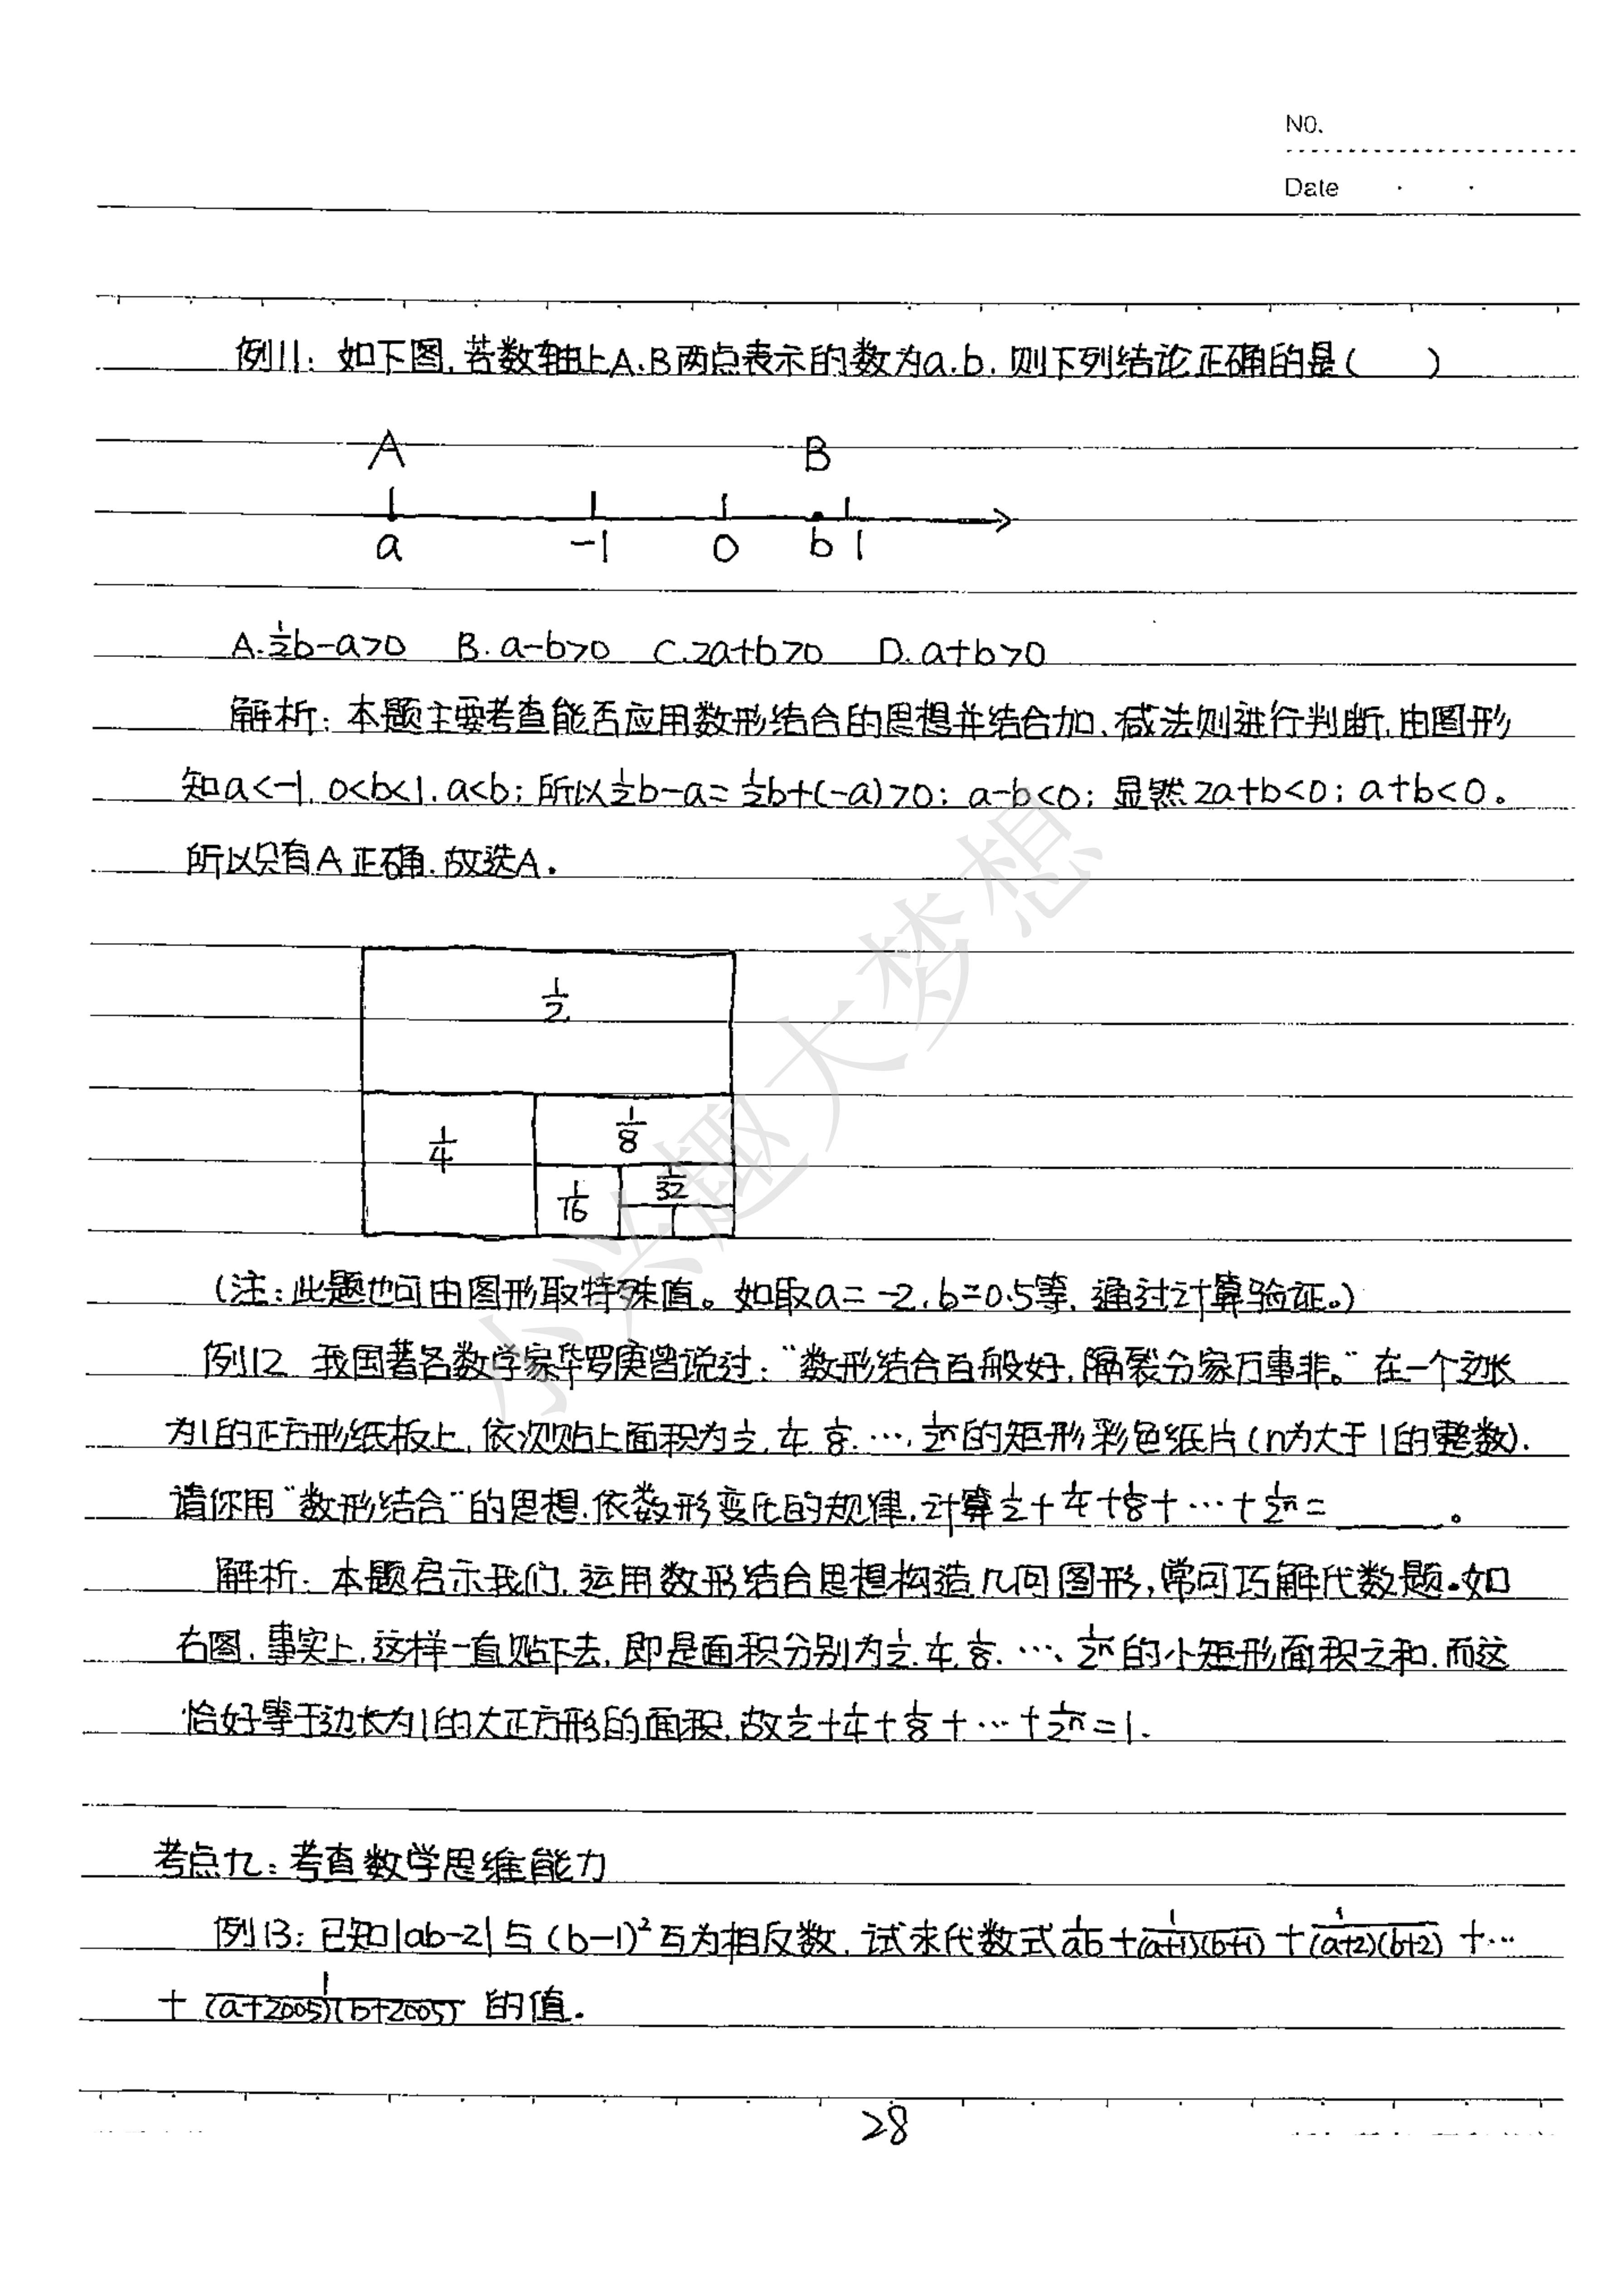 NO.
Date
例11：如下图，若数轴上A、B两点表示的数为a、b，则下列结论正确的是（ ）
A B
a -1 0 b 1
A.½b-a>0 B.a-b>0 C.2a+b>0 D.a+b>0
解析：本题主要考查能否应用数形结合的思想并结合加、减法则进行判断，由图形
知a<-1，0<b<1，a<b；所以½b-a=½b+(-a)>0；a-b<0；显然2a+b<0；a+b<0。
所以只有A正确，故选A.
1/2
1/4 1/8
1/16 1/32
(注：此题也可由图形取特殊值。如取a=-2，b=0.5等，通过计算验证。)
例12 我国著名数学家华罗庚曾说过：“数形结合百般好，隔裂分家万事非。”在一个边长
为1的正方形纸板上，依次贴上面积为1/2，1/4，1/8，…，1/2ⁿ的矩形彩色纸片(n为大于1的整数).
请你用“数形结合”的思想，依数形变化的规律，计算1/2+1/4+1/8+…+1/2ⁿ=____。
解析：本题启示我们，运用数形结合思想构造几何图形，常可巧解代数题.如
右图，事实上，这样一直贴下去，即是面积分别为1/2，1/4，1/8，…，1/2ⁿ的小矩形面积之和，而这
恰好等于边长为1的大正方形的面积，故1/2+1/4+1/8+…+1/2ⁿ=1.
考点九：考查数学思维能力
例13：已知|ab-2|与(b-1)²互为相反数，试求代数式1/ab+1/(a+1)(b+1)+1/(a+2)(b+2)+…
+1/(a+2005)(b+2005)的值.
28
小兴趣大梦想